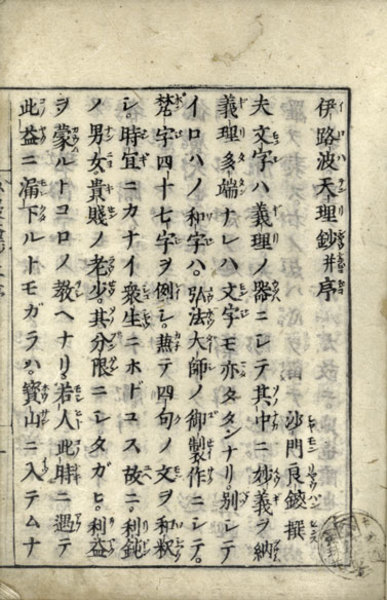 伊路波天理鈔并序
沙門良鑁撰
夫文字ハ義理ノ器ニシテ其中ニ妙義ヲ納
義理多端ナレハ文字モ亦タタンナリ。別シテ
イロハノ和字ハ。弘法大師ノ御製作ニシテ。
梵字四十七字ヲ例シ。四句ノ文ヲ和釈
シ。時宜ニカナイ衆生ニホドコス故ニ。利鈍
ノ男女貴賤ノ老少。其分限ニシタガヒ。利益
ヲ蒙ルトコロノ教ヘナリ。若人此時ニ遇テ
此益ニ漏下ルトモガラハ。寶山ニ入テムナ